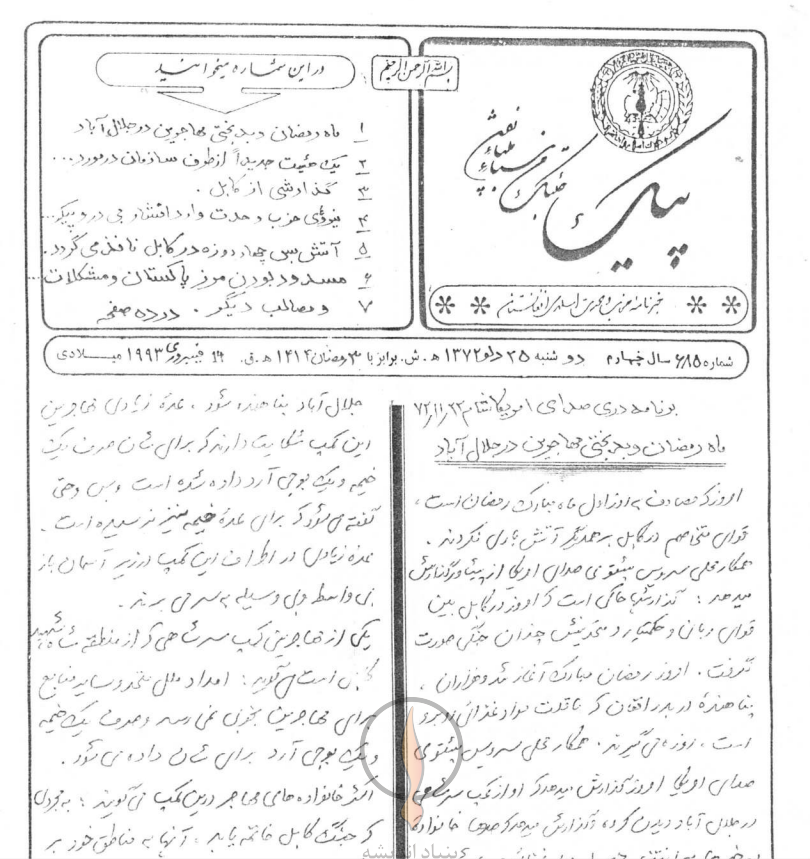 بسم الله الرحمن الرحیم
پیک
خبرنامه حزب وحدت اسلامی افغانستان
در این شماره میخوانید
۱ ماه رمضان و بدبختی مهاجرین در جلال آباد
۲ یک هئیت جدیداً از طرف سازمان در مورد...
۳ گذارشی از کابل.
۴ نیروی حزب وحدت وارد افشار می در و پیکر...
۵ آتش بس چهار روزه در کابل نافذ می گردد.
۶ مسدود بودن مرز پاکستان و مشکلات...
۷ و مطالب دیگر. در ده صفحه
شماره ۶۸۵ سال چهارم دو شنبه ۲۵ دلو ۱۳۷۲ ه.ش. برابر با ۳ رمضان ۱۴۱۴ ه.ق. ۱۴ فیبروری ۱۹۹۳ میلادی
برنامه دری صدای امریکا شام ۷۲/۱۱/۲۳
ماه رمضان و بدبختی مهاجرین در جلال آباد
امروز که مصادف به روز اول ماه مبارک رمضان است،
قوای متخاصم در کابل بر همدیگر آتش باری نکردند.
همکار محلی سرویس پشتوی صدای امریکا از پشاور گذارش
میدهد: گذارشها حاکی است که امروز در کابل بین
قوای ربانی و حکمتیار و متحدینش چندان جنگی صورت
نگرفت. امروز رمضان مبارک آغاز شد و هزاران
پناهنده در بدر افغان که با قلت مواد غذائی روبرو
است، روزه می گیرند. همکار محلی سرویس پشتوی
صدای امریکا امروز گذارش میدهد که او از کمپ سرشاهی
در جلال آباد دیدن کرده، گذارش میدهد که صدها خانواده
جلال آباد پناهنده شود، عدهٔ زیادی مهاجرین
این کمپ شکایت دارند که برای شان صرف یک
خیمه و یک بوجی آرد داده شده است و بس و حتی
گفته می شود که برای عدهٔ خیمه نیز نرسیده است.
عده زیادی در اطراف این کمپ در زیر آسمان باز
بی واسطه و بی وسیله به سر می برند.
یکی از مهاجرین کمپ سرشاهی که از منطقه شاه شهید
کابل است می گوید: امداد ملل متحد و سایر منابع
برای مهاجرین بخوبی نمی رسد و صرف یک خیمه
و یک بوجی آرد برای شان داده می شود.
اکثر خانواده های مهاجر درین کمپ می گویند: به مجردی
که جنگ کابل خاتمه یابد، آنها به مناطق خود بر
بنیاد اندیشه